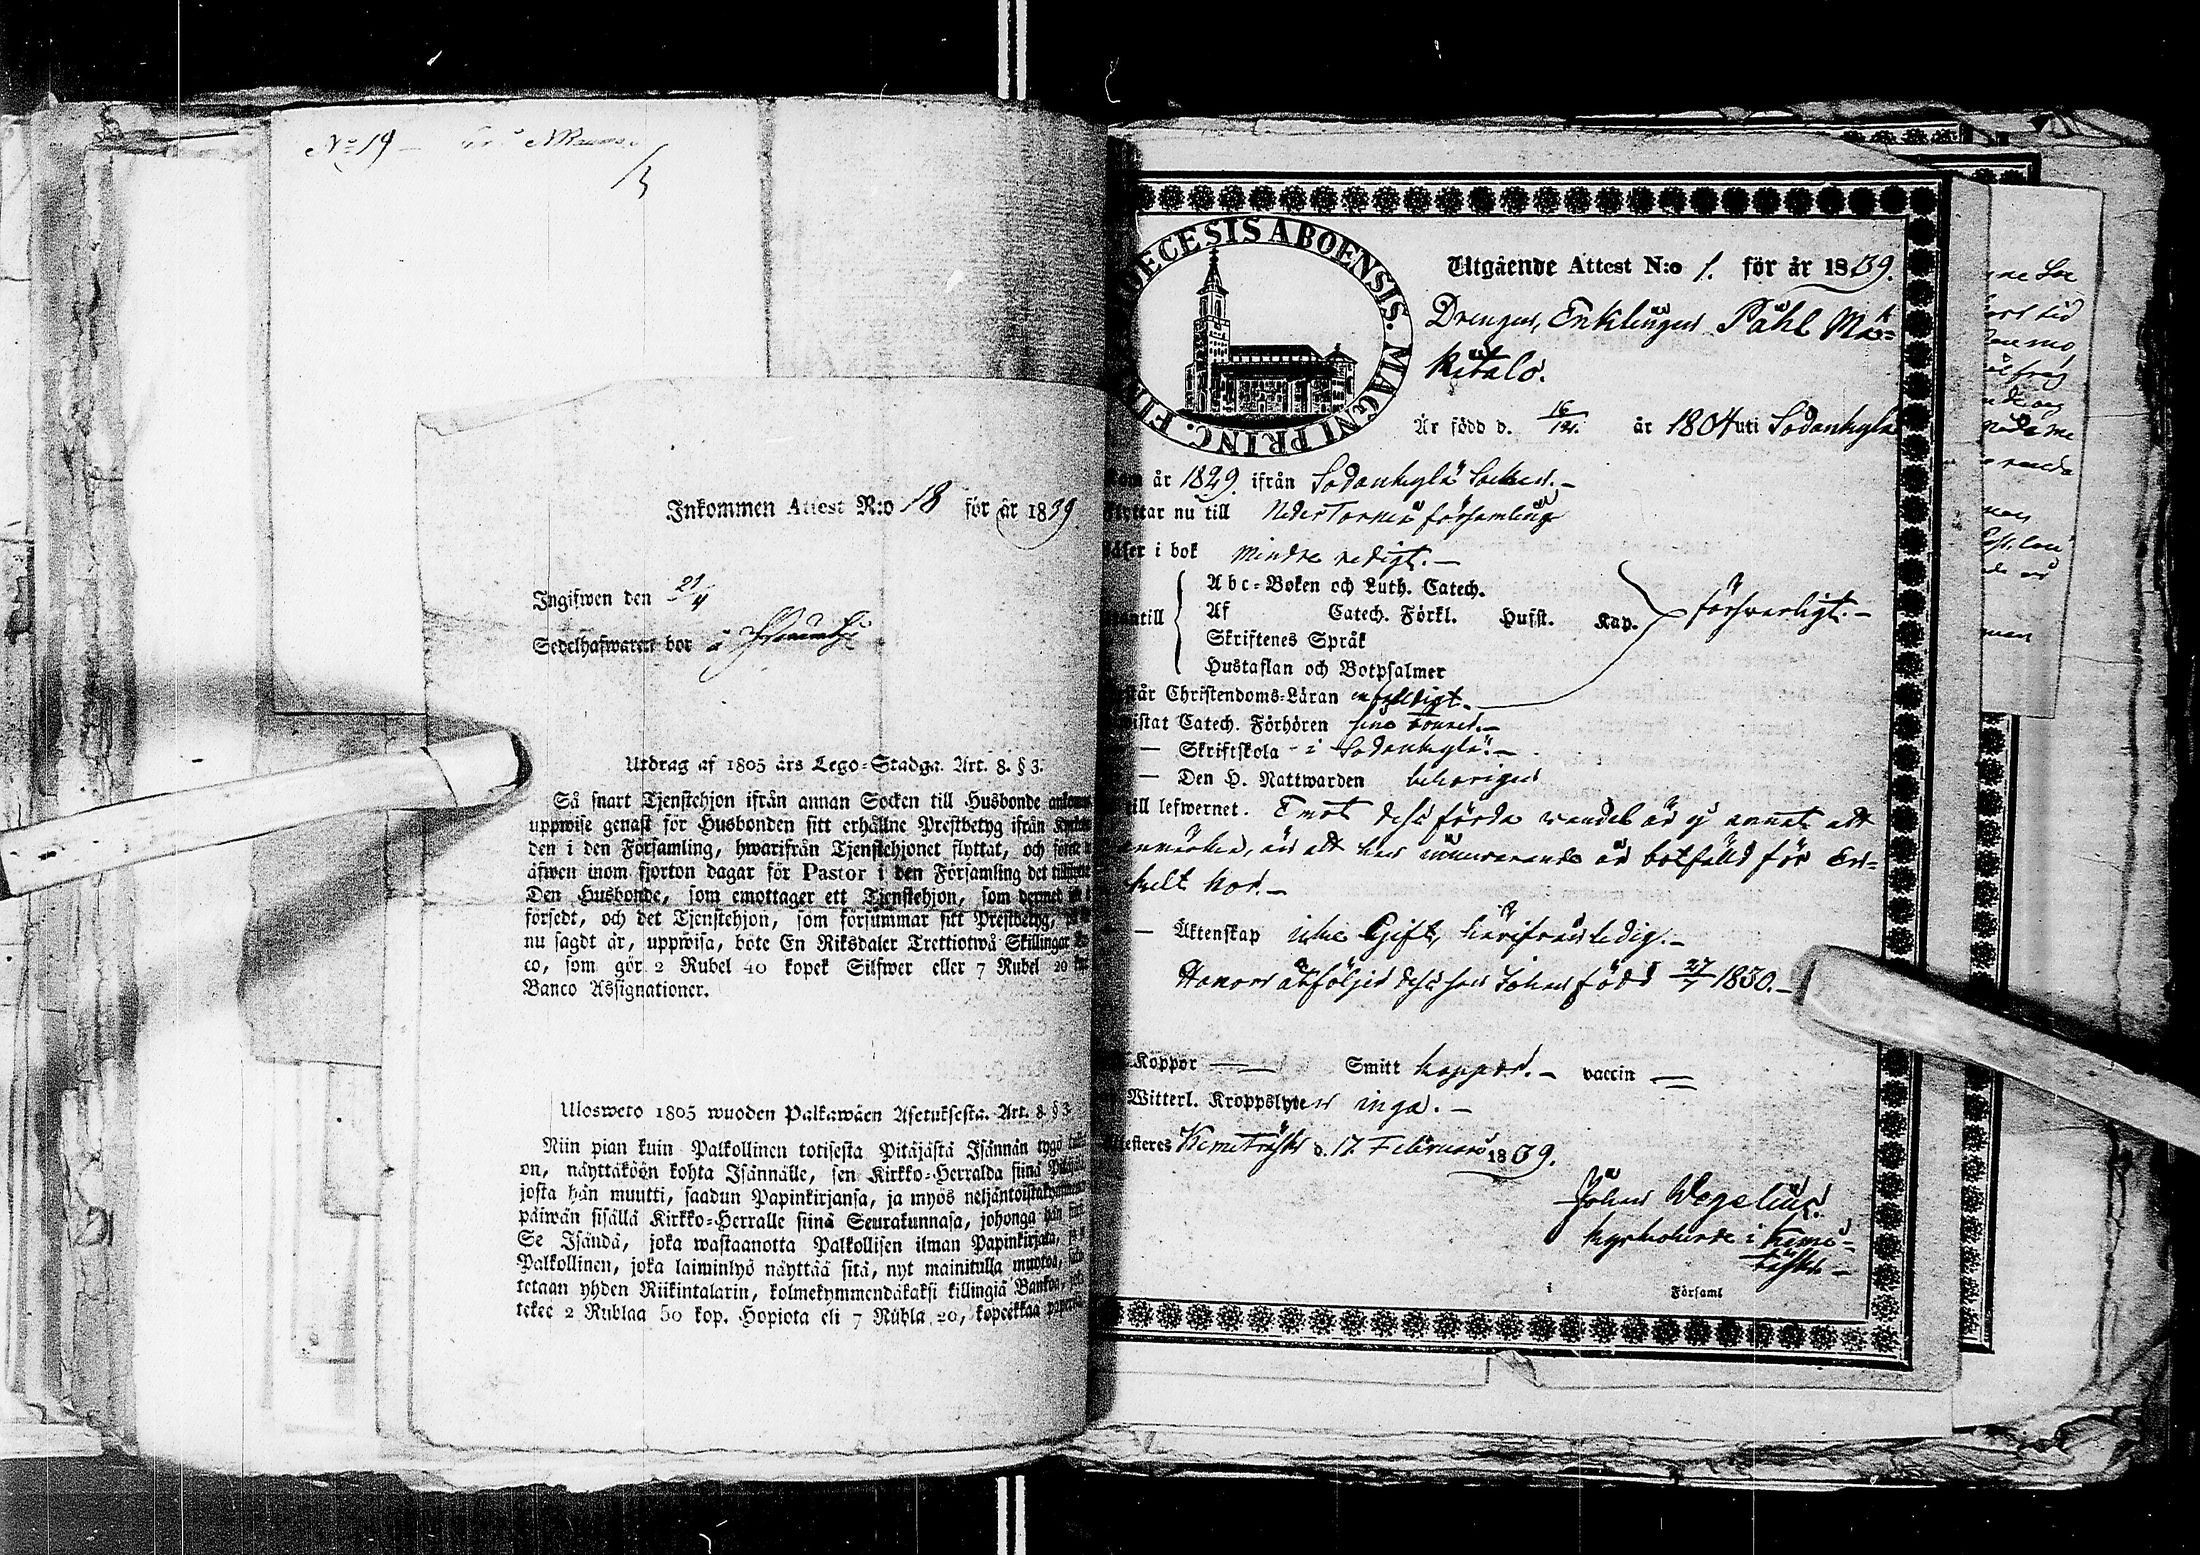 No 19
Inkommen Attest N:o 18 för år 1839
Ingifwen den 21/4
Sedelhafwaren bor i
Utdrag af 1805 års Lego-Stadga. Art. 8. § 3.
Så snart Tjenstehjon ifrån annan Socken till Husbonde
uppwise genast för Husbonden sitt erhållne Prestbetyg ifrån
den i den Församling, hwarifrån Tjenstehjonet flyttat, och
äfwen inom fjorton dagar för Pastor i den Församling det
Den Husbonde, som emottager ett Tjenstehjon, som dermed
försedt, och det Tjenstehjon, som försummar sitt Prestbetyg,
nu sagdt är, uppwisa, böte En Riksdaler Trettiotwå Skillingar
co, som gör 2 Rubel 40 kopek Silfwer eller 7 Rubel 20
Banco Assignationer.
Ulosweto 1805 wuoden Palkawäen Asetuksesta. Art. 8. § 3
Niin pian kuin Palkollinen toisesta Pitäjästä Isännän tygö
on, näyttäköön kohta Isännälle, sen Kirkko-Herralda siinä
josta hän muutti, saadun Papinkirjansa, ja myös
päiwän sisällä Kirkko-Herralle siinä Seurakunnasa, johonga hän
Se Isändä, joka wastaanotta Palkollisen ilman Papinkirjata,
Palkollinen, joka laiminlyö näyttää sitä, nyt mainitulla muotoa,
tetaan yhden Riikintalarin, kolmekymmendäkaksi killingiä Bankoa,
tekee 2 Rublaa 50 kop. Hopiota eli 7 Rubla 20, kopeekkaa
DIOECESIS ABOENSIS. MAGNI PRINC.
Utgående Attest N:o 1. för år 1839.
Drengen, Enklingen Påhl Mä-
kitalo.
Är född d. 16/12. år 1804 uti Sodankylä
Kom år 1829. ifrån Sodankylä Socken.-
Flyttar nu till NederTorneå församling
Läser i bok mindre redigt.-
Abc-Boken och Luth. Catech.
Af Catech. Förkl. Husst. Kap. försvarligt.-
Skriftenes Språk
Hustaflan och Botpsalmer
Christendoms-Läran enfeldigt.-
Catech. Förhören sine tourer.-
- Skriftskola - i Sodankylä.-
- Den H. Nattwarden behörigen
till lefwernet. Emot dess förda vandel är ej annat att
anmärka, än att han nuvarande är botfälld för En-
kelt hor.-
- Äktenskap icke Gift, härifrån ledig.-
Honom åtföljer dess son Johan född 27/7 1830.-
Koppor — Smitt koppor.- vaccin —
Witterl. Kroppslyten inga.-
Attesteres Kemiträsk d. 17 Februari 1839.
Johan Wegelius.
Kyrkoherde i Kemi-
träsk-
i Församl